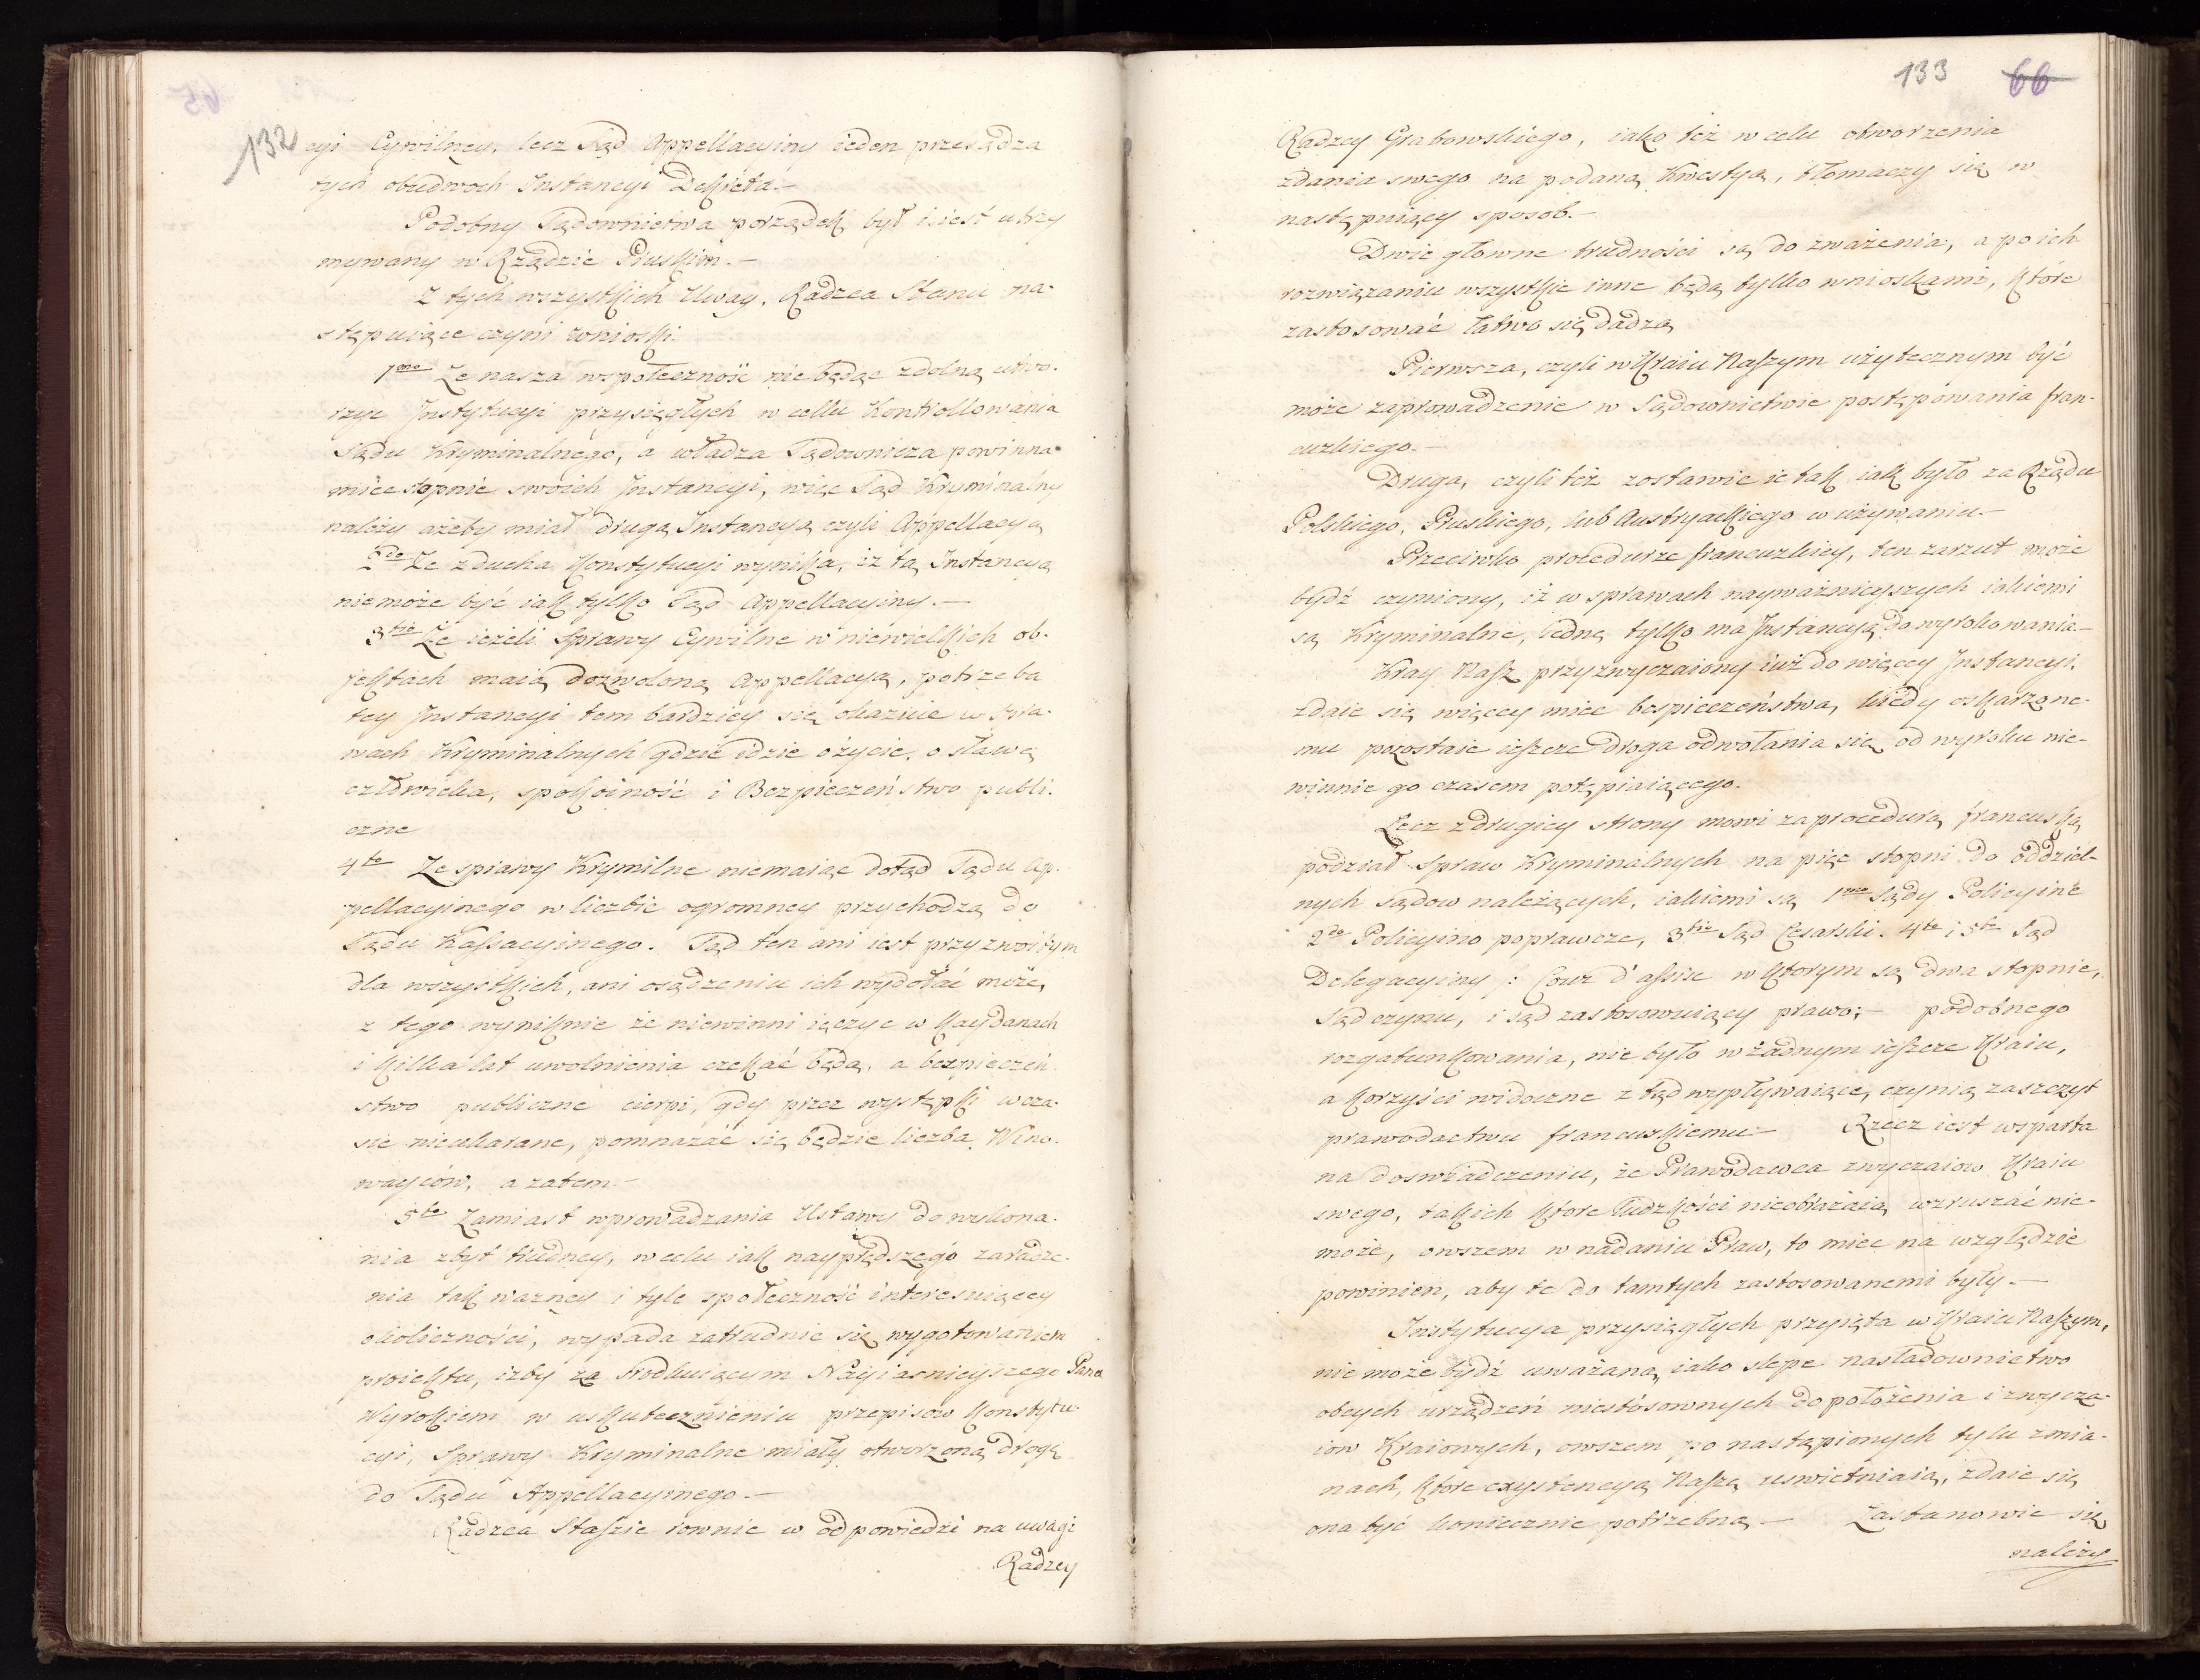 132
cyi Cywilney, lecz Sąd Appellacyiny ieden przesądza
tych obudwoch Instancyi Dekreta.—
Podobny Sądownictwa porządek był i iest utrzy
mywany w Rządzie Pruskim.—
Z tych wszystkich Uwag, Radzca Stanu na-
stępuiące czyni wnioski.
1mo Że nasza wspołeczność nie będąc zdolną utwo-
rzyc Instytucyi przysięgłych w cellu Kontrollowania
Sądu Kryminalnego, a władza Sądownicza powinna
miec stopnie swoich Instancyi, więc Sąd Kryminalny
należy ażeby miał drugą Instancyą czyli Appellacyą
2do Że z ducha Konstytucyi wynika, iż tą Instancyą
niemoże być iak tylko Sąd Appellacyiny.—
3tio Że ieżeli Sprawy Cywilne w niewielkich ob-
jektach maią dozwoloną Appellacyą, potrzeba
tey Instancyi tem bardziey się okazuie w Spra-
wach Kryminalnych gdzie idzie o życie, o sławę
człowieka, spokoiność i Bezpieczeństwo publi-
czne
4to Że sprawy Krymilne niemaiąc dotąd Sądu Ap-
pellacyinego w liczbie ogromney przychodzą do
Sądu Kassacyinego. Sąd ten ani iest przyzwoitym
dla wszystkich, ani osądzeniu ich wydołać może,
z tego wyniknie że niewinni ięczyc w Kaydanach
i kilka lat uwolnienia czekać będą, a bezpieczeń
stwo publiczne cierpi, gdy przez występki wcza-
sie nieukarane, pomnażać się będzie liczba Wino-
wayców, a zatem.—
5to Zamiast wprowadzania Ustawy do wykona-
nia zbyt trudney, w celu iak nayprędszego zaradze-
nia tak ważney i tyle społeczność interesuiącey
okoliczności, wypada zatrudnic się wygotowaniem
proiektu, iżby za srodkuiącym Nayiasnieyszego Pana
Wyrokiem w uskutecznieniu przepisow Konstytu-
cyi, Sprawy Kryminalne miały otworzoną drogę
do Sądu Appellacyinego.—
Radzca Staszic rownie w odpowiedzi na uwagi
Radzcy
133 66
Radzcy Grabowskiego, iako też w celu otworzenia
zdania swego na podaną Kwestyą, tłomaczy się w
następuiący sposob.—
Dwie głowne trudności są do zważenia, a po ich
rozwiązaniu wszystkie inne będą tylko wnioskami, które
zastosować łatwo się dadzą
Pierwsza, czyli w Kraiu Naszym użytecznym być
może zaprowadzenie w Sądownictwie postępowania fran-
cuzkiego.—
Druga, czyli też zostawic ie tak iak było za Rządu
Polskiego, Pruskiego, lub Austryackiego w używaniu.—
Przeciwko procedurze francuzkiey, ten zarzut może
bydź czyniony, iż w sprawach nayważnieyszych iakiemi
są Kryminalne, iedną tylko ma Instancyą do wyrokowania.—
Kray Nasz przyzwyczaiony iuż do więcey Instancyi,
zdaie się więcey miec bespieczeństwa, kiedy oskarzone-
mu pozostaie ieszcze droga odwołania się od wyroku nie-
winnie go czasem potępiaiącego.
Lecz z drugiey strony mowi za procedurą francuską
podział Spraw Kryminalnych na pięc stopni do oddziel-
nych sądow należących, iakiemi są 1mo Sądy Policyine
2do Policyino poprawcze, 3tio Sąd Cesarski. 4to i 5to Sąd
Delegacyiny /: Cour d'assise w ktorym są dwa stopnie,
Sąd czynu, i sąd zastosowuiący prawo;— podobnego
rozgatunkowania, nie było w żadnym ieszcze Kraiu,
a korzyści widoczne z tąd wypływaiące, czynią zaszczyt
prawodactwu francuskiemu— Rzecz iest wsparta
na doswiadczeniu, że Prawodawca zwyczaiow Kraiu
swego, takich ktore ludzkości nieobrażaią wzruszać nie-
może, owszem w nadaniu Praw, to miec na względzie
powinien, aby te do tamtych zastosowanemi były.—
Instytucya przysięgłych przyięta w Kraiu Naszym,
nie może bydź uważaną, iako slepe nasladownictwo
obcych urządzeń niestósownych do położenia i zwycza-
iow Kraiowych, owszem po nastąpionych tylu zmia-
nach, ktore exystencyą Naszą uswietniaią, zdaie się
ona być koniecznie potrzebną— Zastanowic się
należy